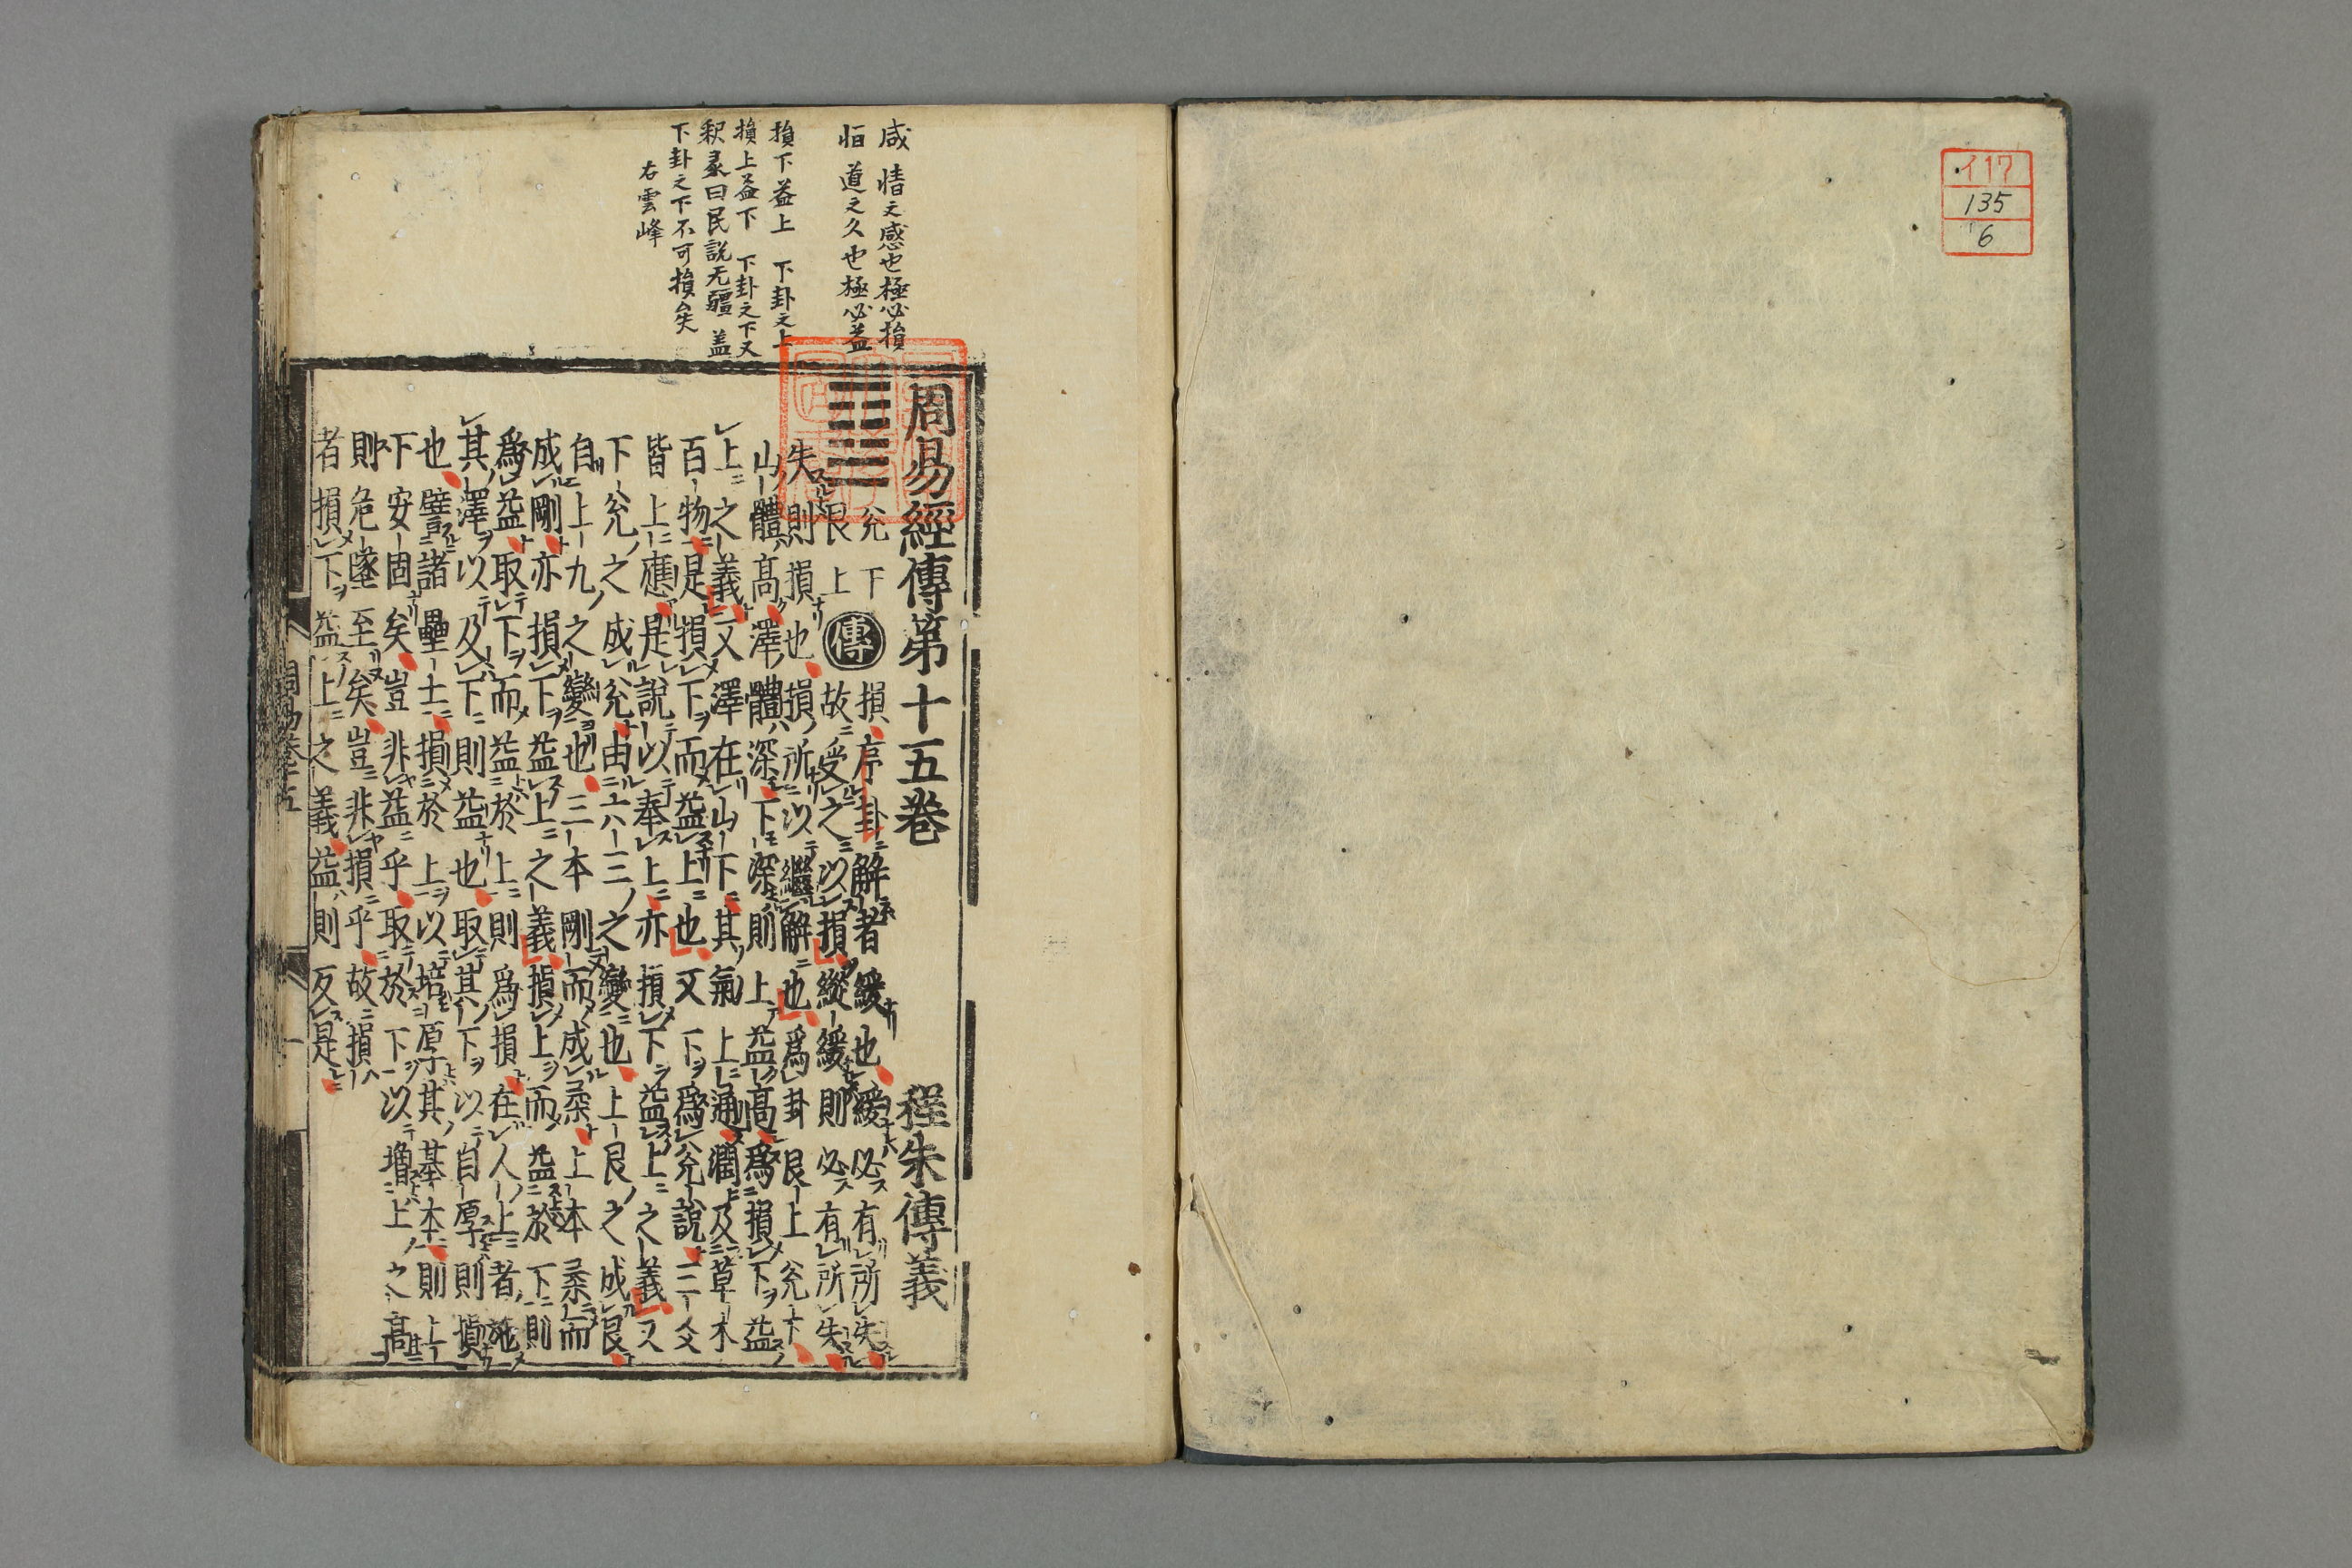 イ17
135
6
咸 情之感也極必損
恒 道之久也極必益
損下益上 下卦之上
損上益下 下卦之下又
釈彖曰民説无疆 盖
下卦之下不可損矣
右雲峰
周易經傳第十五巻 程朱傳義
兌下 傳 損序卦解者緩也緩必有所失
艮上 故受之以損縱緩則必有所失
失則損也損所以繼解也爲卦艮上兌下
山體高澤體深下深則上益高爲損下益
上之義又澤在山下其氣上通潤及草木
百物是損下而益上也又下爲兌說三爻
皆上應是說以奉上亦損下益上之義又
下兌之成兌由六三之變也上艮之成艮
自上九之變也三本剛而成柔上本柔而
成剛亦損下益上之義損上而益於下則
爲益取下而益於上則爲損在人上者施
其澤以及下則益也取其下以自厚則損
也譬諸壘土損於上以培厚其基本則上
下安固矣豈非益乎取於下以増上之高
則危墜至矣豈非損乎故損
者損下益上之義益則反是
周易巻十五 一